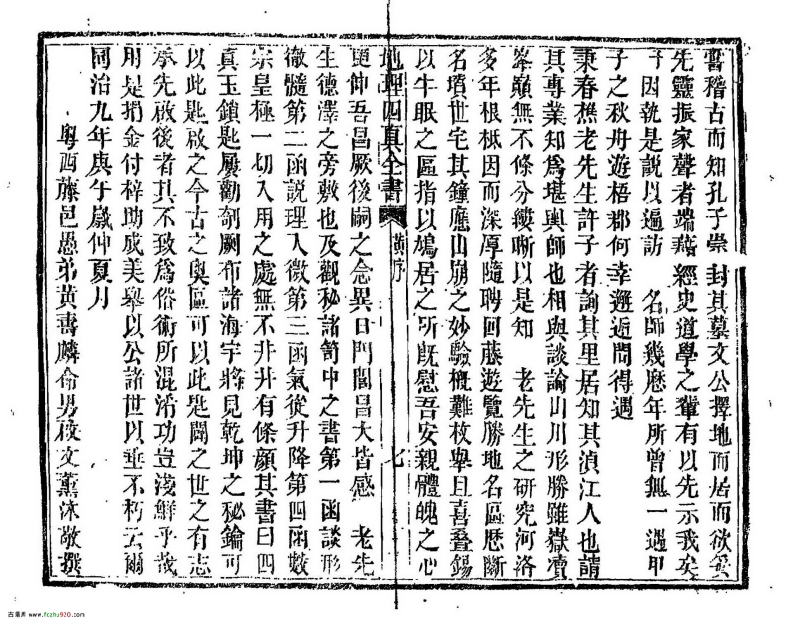 嘗稽古而知孔子崇　封其墓文公擇地而居而欲
先靈振家聲者端藉　經史道學之輩有以先示我矣
因執是說以遍訪　名師幾歷年所曾無一遇甲
子之秋舟遊梧郡何幸邂逅間得遇
秉春樵老先生許子者詢其里居知其滇江人也請
其專業知為堪輿師也相與談論山川形勝雖嶽瀆
峯巔無不條分縷晰以是知　老先生之研究河洛
多年根柢因而深厚隨聘回藤遊覽勝地名區歷斷
名墳世宅其鐘應山崩之妙驗概難枚舉且喜叠錫
以牛眠之區指以鳩居之所既慰吾安親體魄之心
地理四真全書　黃序　七
更仰吾昌厥後嗣之念異日門閭昌大皆感　老先
生德澤之旁敷也及觀秘諸笥中之書第一函談形
徹髓第二函說理入微第三函氣從升降第四函數
宗皇極一切入用之處無不井井有條顏其書曰四
真玉鎖匙屢勸剞劂布諸海宇將見乾坤之秘鑰可
以此匙啟之今古之奧區可以此匙闢之世之有志
承先啟後者其不致為俗術所混淆功豈淺鮮乎哉
用是捐金付梓助成美舉以公諸世以垂不朽云爾
同治九年庚午歲仲夏月
粵西藤邑愚弟黃書麟命男啟文薰沐敬撰
古易界 www.fczhu920.com